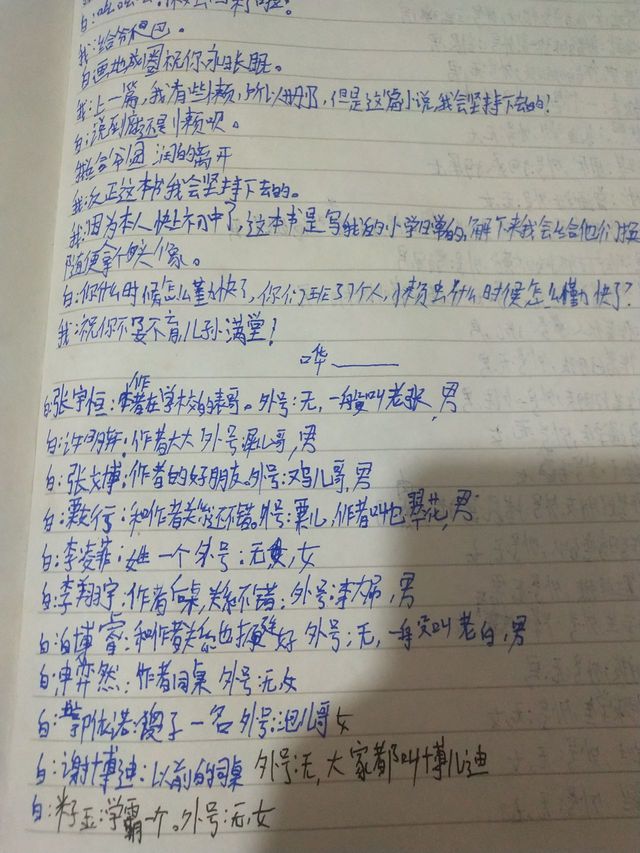 我:给爷巴。
白:画地成圈祝你永长眠。
我:上一篇,我有些小懒,所以册了,但是这篇小说,我会坚持下去的!
白:说到底还是小懒呗。
我:反正这本书我会坚持下去的。
我:因为本人快上初中了,这本书是写我的小学日常的,解下来我会给他们
随便拿个头像。
白:你什么时候怎么勤快了,你们班37个人,小懒虫什么时候怎么勤快了?
我:祝你不孕不育,儿孙满堂!
哗——
白:张宇恒:作者在学校的表哥。外号:无,一般叫老张,男
白:许明轩:作者大大 外号:犀儿哥,男
白:张博:作者的好朋友外号:鸡儿哥,男
白:行:和作者关系不错。外号:栗儿,作者叫他翠花,男
白:李凌菲:女生一个 外号:无,女
白:李翔宇:作者同桌,关系不错,外号:李大吊,男
白:白博睿:和作者关系也挺好 外号:无,一般叫老白,男
白:申弈然:作者同桌 外号:无女
白:郭依诺:傻子一名 外号:泡儿哥女
白:谢博迪:以前的同桌 外号:无,大家都叫博儿迪
白:籽玉:学霸一个。外号:无,女